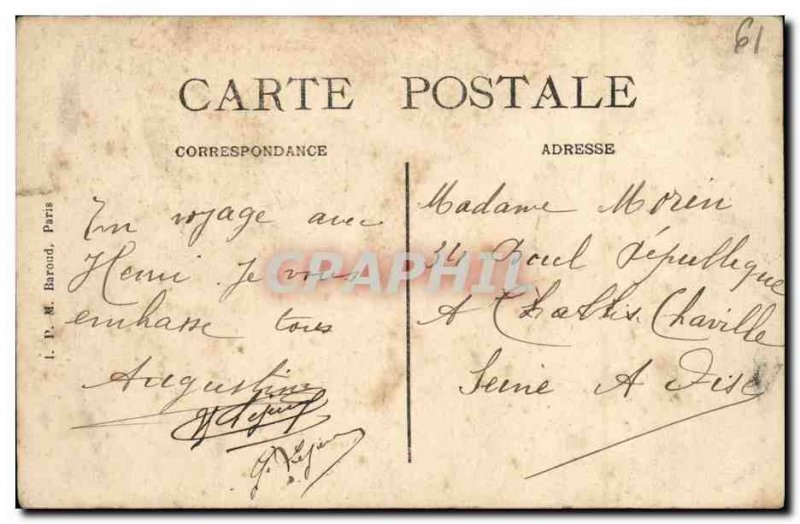 61
CARTE POSTALE
CORRESPONDANCE
ADRESSE
I. P. M. Baroud, Paris
En voyage avec
Henri Je vous
embrasse tous
Augustine
Madame Morin
34 Boul République
A Chaville
Seine A Oise
CPAPHIL